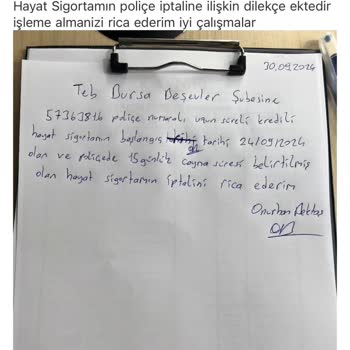 Hayat Sigortamın poliçe iptaline ilişkin dilekçe ektedir
işleme almanizi rica ederim iyi çalışmalar
30.09.2024
Teb Bursa Beşevler Şubesine
57363816 poliçe numaralı uzun süreli kredili
hayat sigortamın başlangıç tarihi 24/09/2024
olan ve poliçede 15 günlük cayma süresi belirtilmiş
olan hayat sigortamın iptalini rica ederim
Onurhan Aektaş